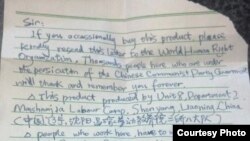 Sir:
If you occassionally buy this product, please
kindly resend this letter to the World Human Right
Organization. Thousands people here who are under
the persicution of the Chinese Communist Party Government
will thank and remember you forever.
This product produced by Unit 8, Department 2
Masanjia Labour Camp, Shenyang, Liaoning, China
(中国,辽宁,沈阳,马三家
people who work here, have to
Courtesy Photo